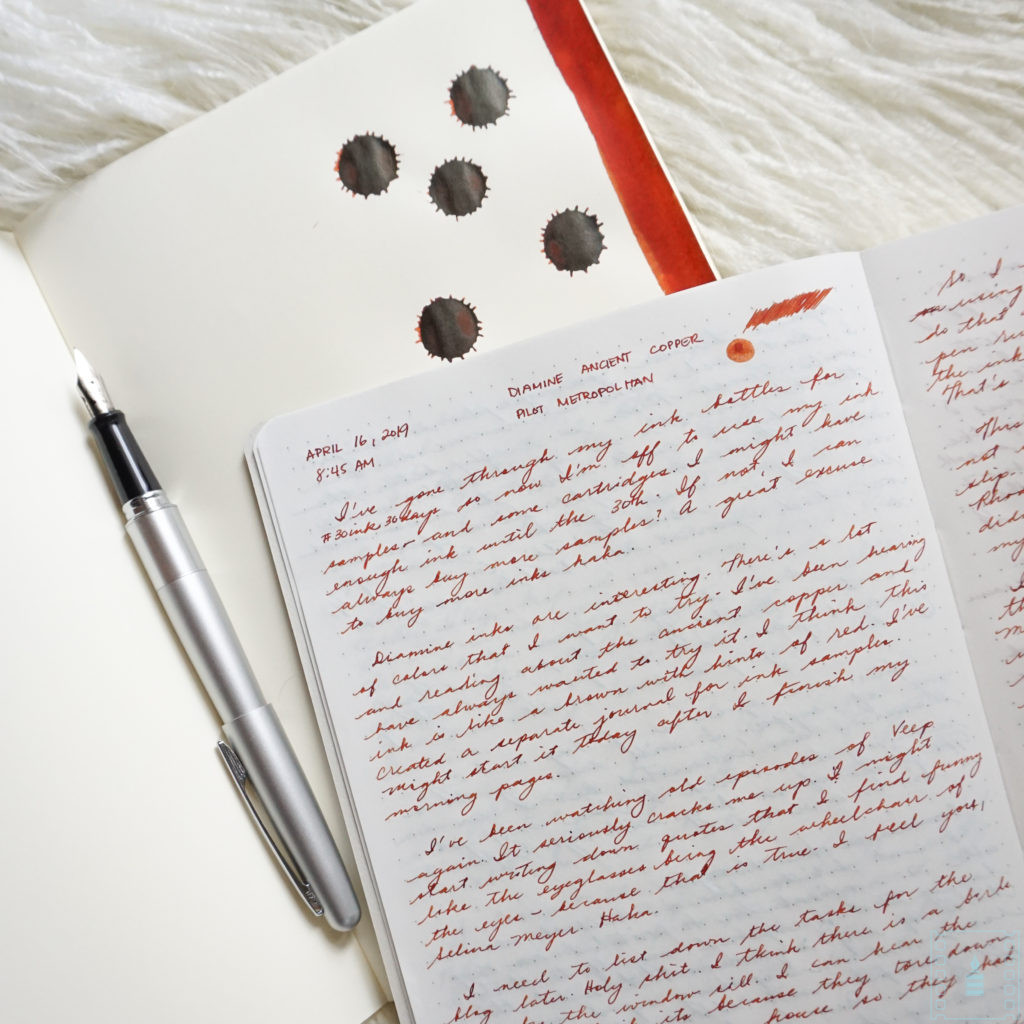 DIAMINE ANCIENT COPPER
PILOT METROPOLITAN
APRIL 16, 2019
8:45 AM
I've gone through my ink bottles for
#30ink30days so now I'm off to use my ink
samples and some cartridges. I might have
enough ink until the 30th. If not, I can
always buy more samples? A great excuse
to buy more inks haha.
Diamine inks are interesting. There's a lot
of colors that I want to try. I've been hearing
and reading about the ancient copper and
have always wanted to try it. I think this
ink is like a brown with hints of red. I've
created a separate journal for ink samples.
Might start it today after I finish my
morning pages.
I've been watching old episodes of Veep
again. It seriously cracks me up. I might
start writing down quotes that I find funny
like the eyeglasses being the wheelchair of
the eyes – because that is true. I feel you,
Selina Meyer. Haha.
I need to list down the tasks for the
blog later. Holy shit. I think there is a
the window sill. I can hear the
its because they tore down
house so they had
So I
using
do that
pen
the ink
That's
This
not
slip
didn
my
I